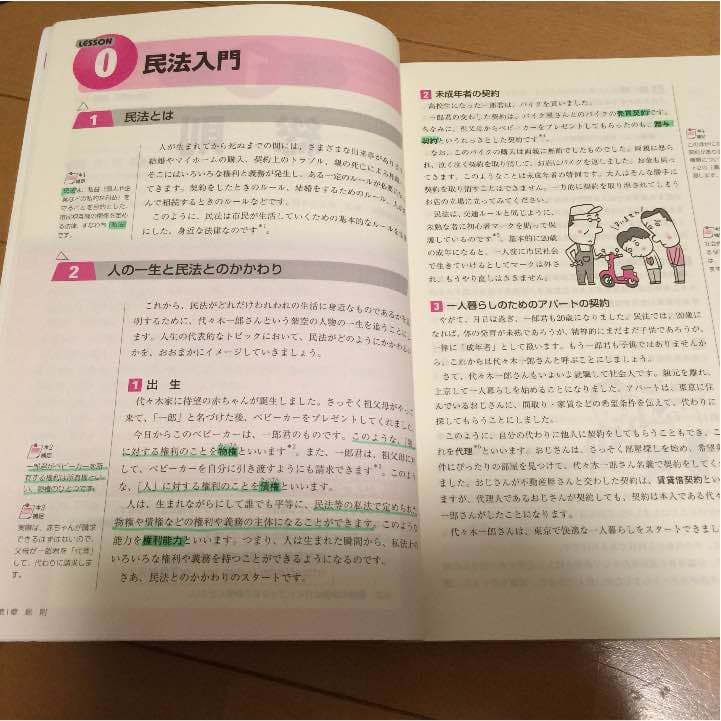 LESSON
0 民法入門
1 民法とは
人が生まれてから死ぬまでの間には、さまざまな出来事があります。
結婚やマイホームの購入、契約上のトラブル、親の死による相続
そこにはいろいろな権利と義務が発生し、ある一定のルールが必要に
てきます。契約をしたときのルール、結婚をするためのルール、人が
んで相続するときのルールなどです。
このように、民法は市民が生活していくための基本的なルールを
にした、身近な法律なのです*1。
*1
補足
民法は、私法（個人や企
業などの私的な利益）を
守ることを目的とした、
市民相互間の関係を定め
る法律、すなわち「私法」
です。
2 人の一生と民法とのかかわり
これから、民法がどれだけわれわれの生活に身近なものであるかを
明するために、代々木一郎さんという架空の人物の一生を追うことに
ます。人生の代表的なトピックにおいて、民法がどのようにかかわる
かを、おおまかにイメージしていきましょう。
1 出 生
代々木家に待望の赤ちゃんが誕生しました。さっそく祖父母がやっ
来て、「一郎」と名づけた後、ベビーカーをプレゼントしてくれました
今日からこのベビーカーは、一郎君のものです。このような、「物」
に対する権利のことを物権といいます*2。また、一郎君は、祖父母
して、ベビーカーを自分に引き渡すようにも請求できます*3。このよう
な、「人」に対する権利のことを債権といいます。
人は、生まれながらにして誰でも平等に、民法等の私法で定められた
物権や債権などの権利や義務の主体になることができます。このような
能力を権利能力といいます。つまり、人は生まれた瞬間から、私法上の
いろいろな権利や義務を持つことができるようになるのです。
さあ、民法とのかかわりのスタートです。
*2
補足
一郎君がベビーカーを所
有する権利は所有権とい
い、物権のひとつです。
*3
補足
実際は、赤ちゃんが請求
できるはずはないので、
父母が一郎君を「代理」
して、代わりに請求しま
す。
第1章 総 則
2 未成年者の契約
高校生になった一郎君は、バイクを買いました。
一郎君の交わした契約は、バイク屋さんとのバイクの売買契約です。
ちなみに、祖父母からベビーカーをプレゼントしてもらったのも、贈与
契約といういわれっきとした契約です*4。
なお、このバイクの購入は両親に無断でしたものでした。両親に怒ら
れ、泣く泣く契約を取り消して、お店にバイクを返しました。お金も戻っ
てきます。このようなことは未成年者の特例です。大人はそんな勝手に
契約を取り消すことはできません。一方的に契約を取り消されてしまう
お店の立場に立ってみてください。
民法は、交通ルールと同じように、
未熟な者に初心者マークを貼って保
護しているのです*5。基本的に20歳
の成年になると、一人前に市民社会
で生きていけるとしてマークは外さ
れ、もうやり直しはききません。
3 一人暮らしのためのアパートの契約
やがて、月日は過ぎ、一郎君も20歳になりました。民法では、20歳に
なれば、体の発育が未熟であろうが、精神的にまだまだ子供であろうが、
一律に「成年者」として扱います。もう一郎君も子供ではありませんか
ら、これからは代々木一郎さんと呼ぶことにしましょう。
さて、代々木一郎さんもいよいよ就職して社会人です。親元を離れ、
上京して一人暮らしを始めることになりました。アパートは、東京に住
んでいるおじさんに、間取り・家賃などの希望条件を伝えて、代わりに
探してもらうことにしました。
このように、自分の代わりに他人に契約をしてもらうこともでき、こ
れを代理といいます。おじさんは、さっそく部屋探しを始め、希望条
件にぴったりの部屋を見つけて、代々木一郎さん名義で契約をしてくく
ました。おじさんが不動産屋さんと交わした契約は、賃貸借契約といい
ますが、代理人であるおじさんが契約しても、契約は本人である代々木
一郎さんがしたことになります。
代々木一郎さんは、東京で快適な一人暮らしをスタートできました